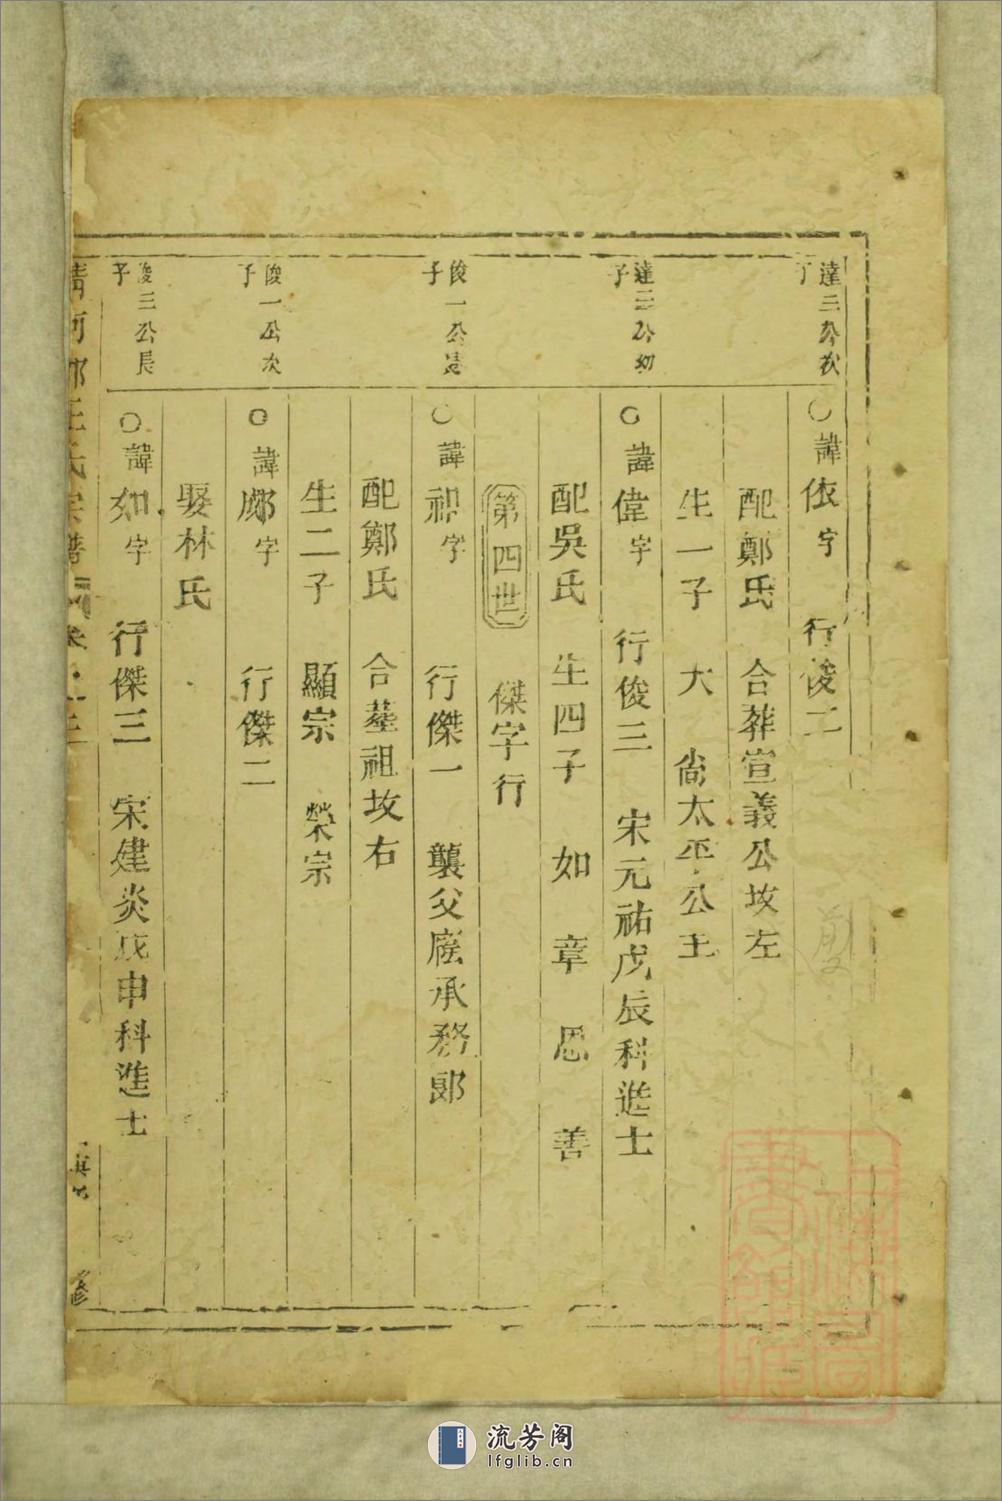 達三公次
子
○諱依字 行俊二
配鄭氏 合葬宣義公坟左
生一子 大 尙太平公主
達三公幼
子
○諱偉字 行俊三 宋元祐戊辰科進士
配吳氏 生四子 如 章 思 善
第四世 傑字行
俊一公長
子
○諱祖字 行傑一 襲父廕承務郎
配鄭氏 合墓祖坟右
生二子 顯宗 榮宗
俊一公次
子
○諱字 行傑二
娶林氏
俊三公長
子
○諱如字 行傑三 宋建炎戊申科進士
清河郡王氏宗譜 卷之三
修
上海圖書館藏
流芳阁
lfglib.cn